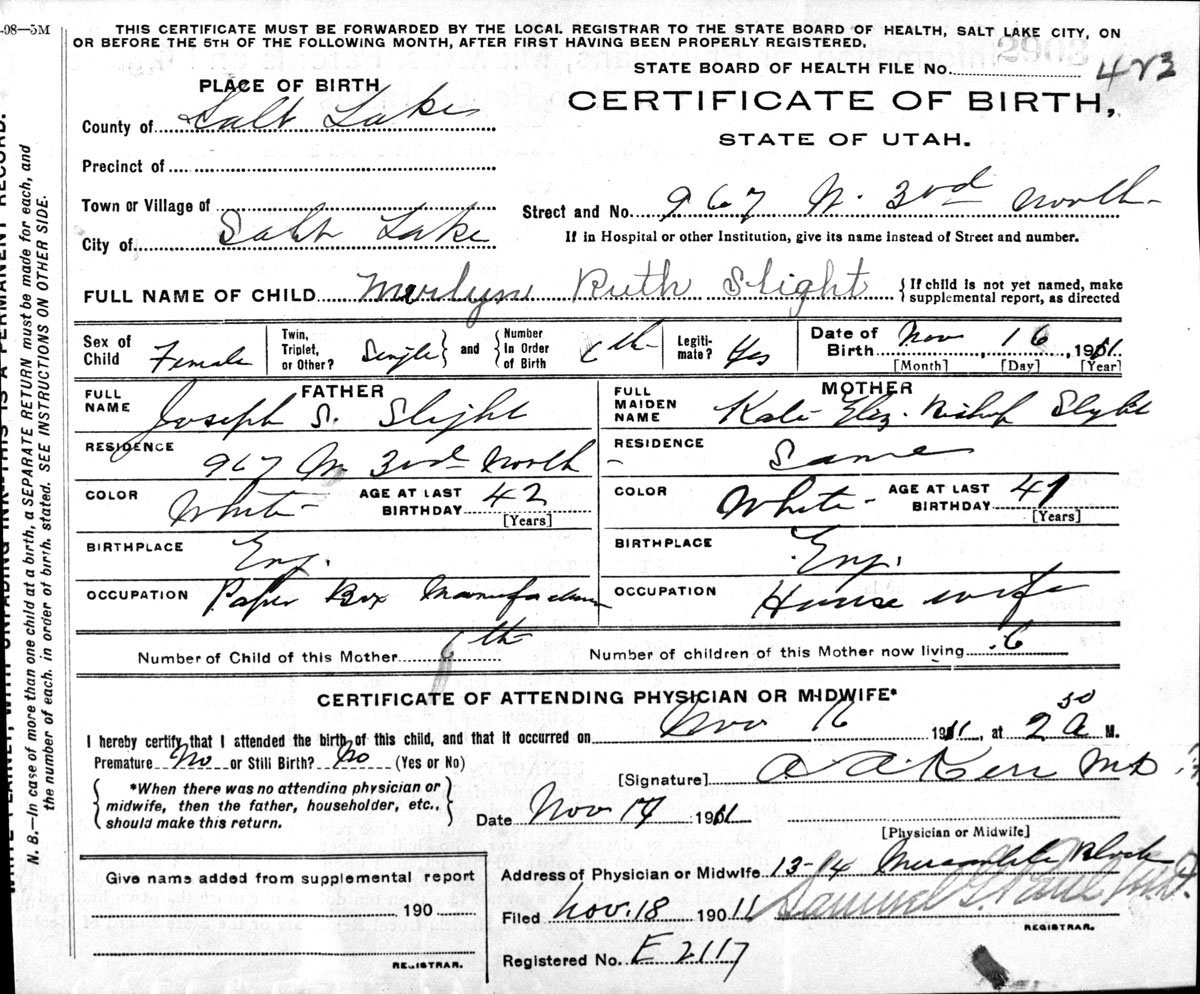 -08—5M
THIS CERTIFICATE MUST BE FORWARDED BY THE LOCAL REGISTRAR TO THE STATE BOARD OF HEALTH, SALT LAKE CITY, ON
OR BEFORE THE 5TH OF THE FOLLOWING MONTH, AFTER FIRST HAVING BEEN PROPERLY REGISTERED.
STATE BOARD OF HEALTH FILE NO. 423
PLACE OF BIRTH
CERTIFICATE OF BIRTH,
STATE OF UTAH.
County of Salt Lake
Precinct of
Town or Village of
Street and No. 967 W. 3rd North
City of Salt Lake
If in Hospital or other Institution, give its name instead of Street and number.
FULL NAME OF CHILD Merlyn Ruth Slight { If child is not yet named, make supplemental report, as directed
Sex of Child Female
Twin, Triplet, or Other? Single } and { Number In Order of Birth 6th
Legiti-mate? Yes
Date of Birth Nov, 16, 1911.
[Month] [Day] [Year]
FATHER
FULL NAME Joseph S. Slight
RESIDENCE 967 W 3rd North
COLOR White AGE AT LAST BIRTHDAY 42 [Years]
BIRTHPLACE Eng.
OCCUPATION Paper Box Manufacturer
MOTHER
FULL MAIDEN NAME Kate Eliz. Bishop Slight
RESIDENCE Same
COLOR White AGE AT LAST BIRTHDAY 41 [Years]
BIRTHPLACE Eng.
OCCUPATION House wife
Number of Child of this Mother 6th Number of children of this Mother now living 6
CERTIFICATE OF ATTENDING PHYSICIAN OR MIDWIFE*
I hereby certify that I attended the birth of this child, and that it occurred on Nov 16 1911, at 2 50 a M.
Premature No or Still Birth? No (Yes or No)
[Signature] A A Kerr MD
{ *When there was no attending physician or midwife, then the father, householder, etc., should make this return. }
Date Nov 17 1911
[Physician or Midwife]
Give name added from supplemental report
190
REGISTRAR.
Address of Physician or Midwife 13-14 Mercantile Block
Filed Nov. 18 1911 Samuel G. M.D.
REGISTRAR.
Registered No. E 2117
N. B.—In case of more than one child at a birth, a SEPARATE RETURN must be made for each, and
the number of each. in order of birth. stated. SEE INSTRUCTIONS ON OTHER SIDE.
WRITE PLAINLY, WITH UNFADING INK—THIS IS A PERMANENT RECORD.